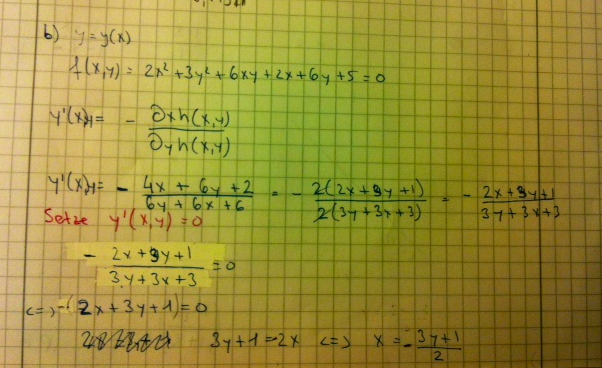 b) y = y(x)
f(x,y) = 2x² + 3y² + 6xy + 2x + 6y + 5 = 0
y'(x,y) = - ∂xh(x,y) / ∂yh(x,y)
y'(x,y) = - (4x + 6y + 2) / (6y + 6x + 6) = - 2(2x + 3y + 1) / 2(3y + 3x + 3) = - (2x + 3y + 1) / (3y + 3x + 3)
Setze y'(x,y) = 0
- (2x + 3y + 1) / (3y + 3x + 3) = 0
<=> -(2x + 3y + 1) = 0
3y + 1 = -2x <=> x = - (3y + 1) / 2